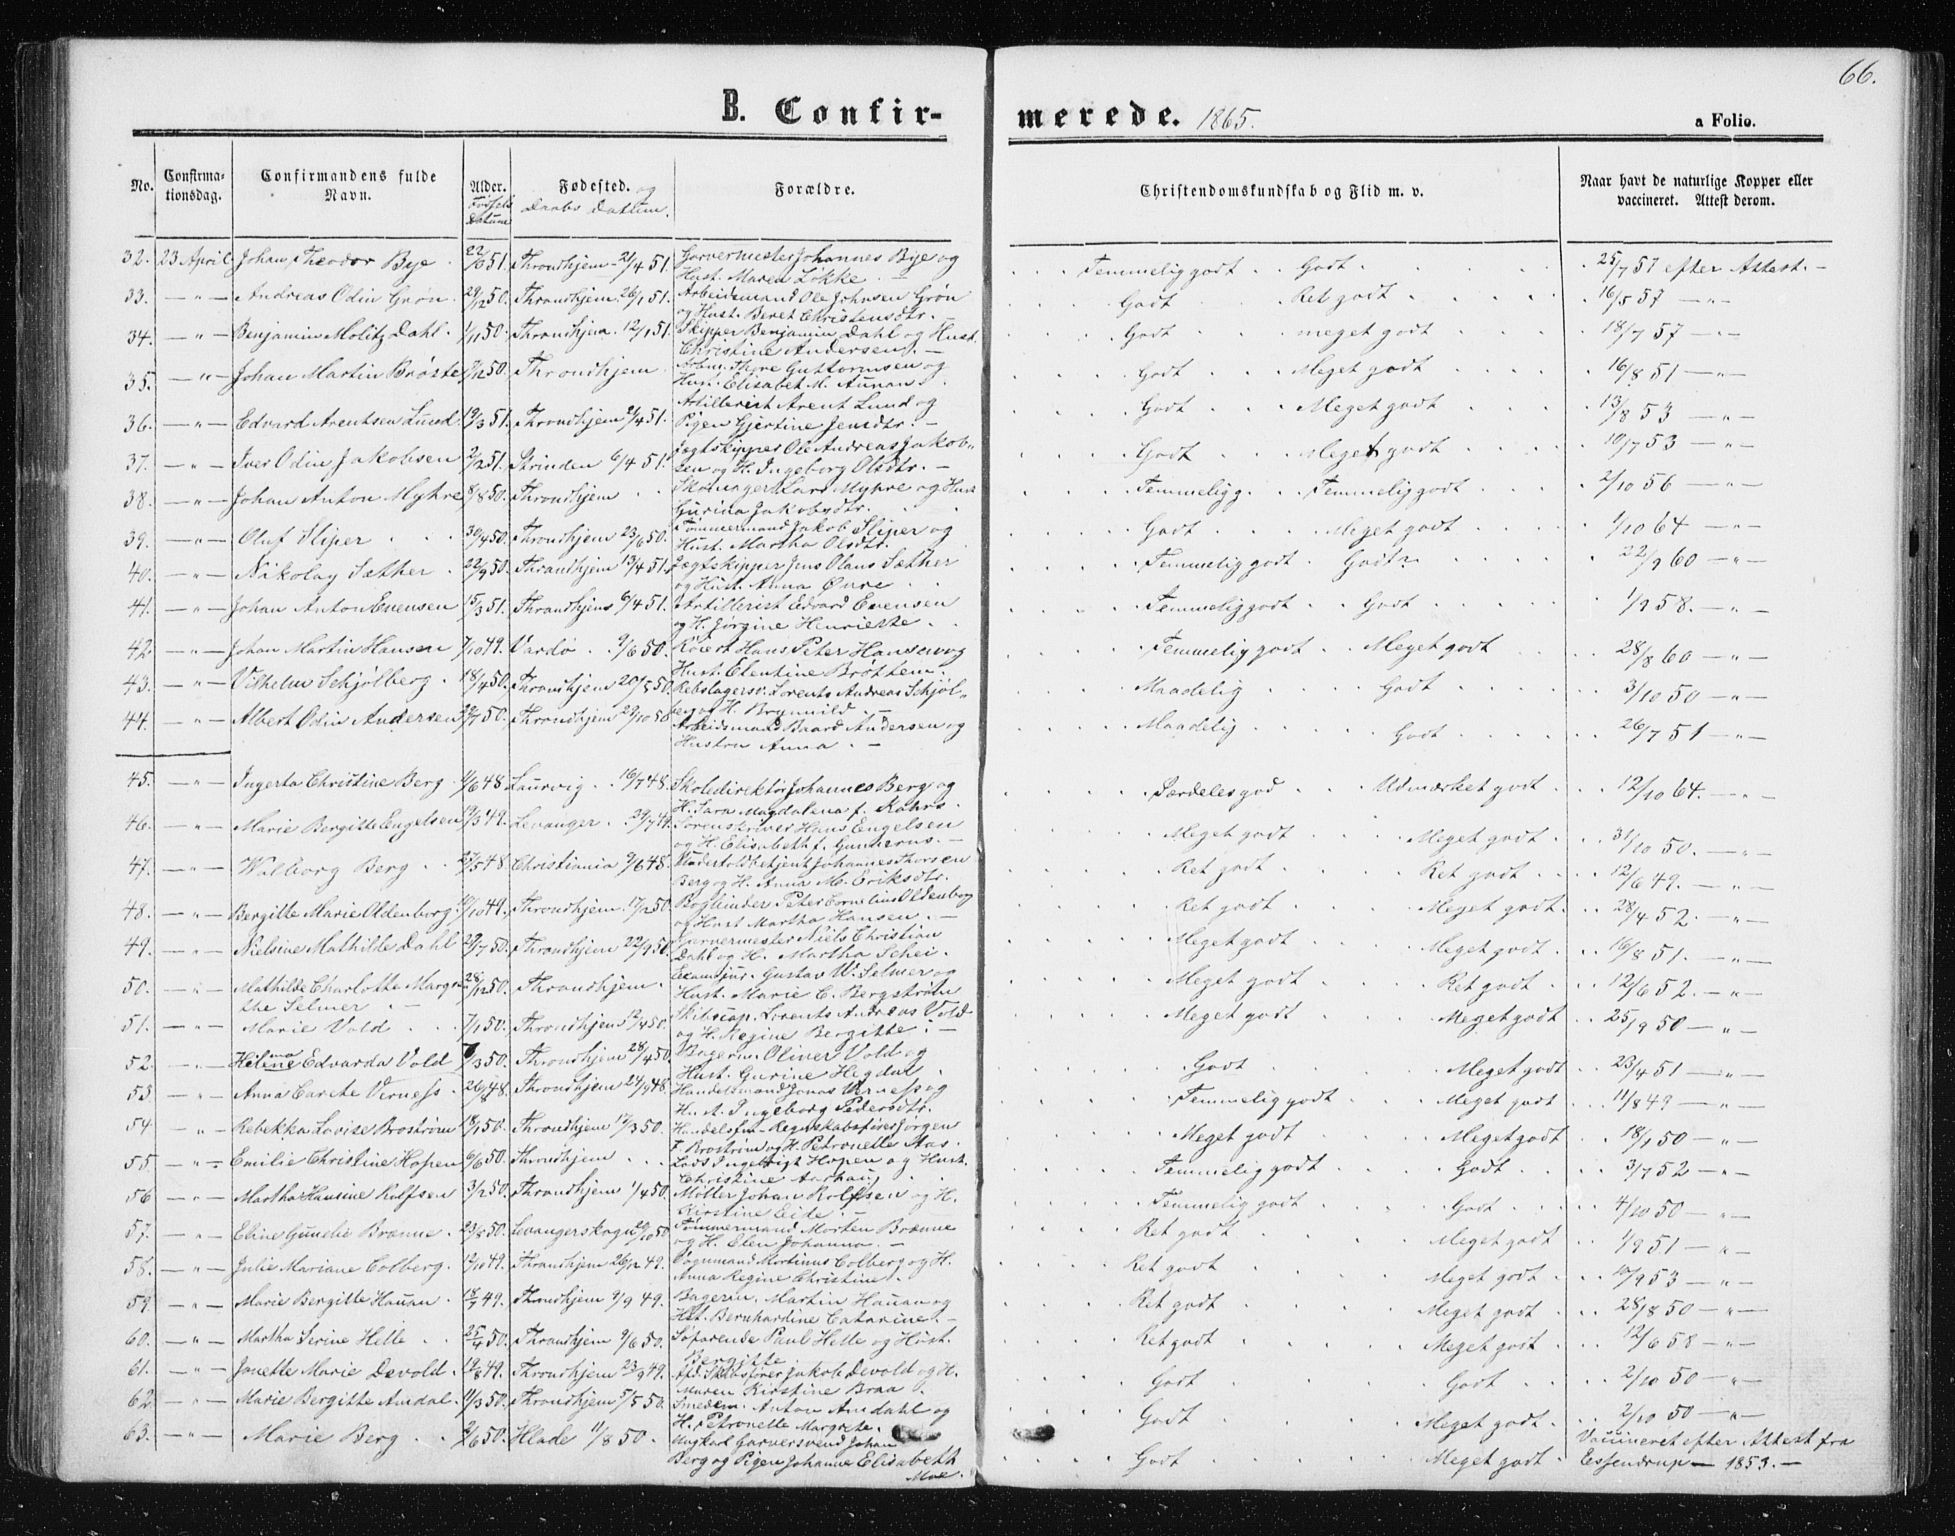 66.
B. Confirmerede. 1865.
a Folio.
No. Confirmationsdag. Confirmandens fulde Navn. Alder. Fødsels Datum Fødested. og Daabs Datum. Forældre. Christendomskundskab og Flid m. v. Naar havt de naturlige Kopper eller vaccineret. Attest derom.
32. 23 April Johan Theodor Bye 51. Throndhjem 21/4 51. Garvermester Johannes Bye og Hust. Maren Løkke. Temmelig godt Godt 25/7 57 efter Attest.
33. — " — Andreas Odin Grøn 29/12 50. Throndhjem 26/1 51. Arbeidsmand Ole Johnsen Grøn og Hust. Beret Christensdtr. Godt Ret godt 16/5 57 — " —
34. — " — Benjamin Molitz Dahl. 50. Throndhjem 12/1 51. Skipper Benjamin Dahl og Hust. Christine Andersen. Godt meget godt 18/7 57 — " —
35. — " — Johan Martin Brøste 12 50. Throndhjem Arbm. Thore Guttormsen og Hust. Elisabet M. Aunan. Godt Meget godt 16/8 51 — " —
36. — " — Edvard Arentsen Lund. 19/3 51. Throndhjem 4 51. Artillerist Arent Lund og Pigen Gjertine Jensdtr. Godt Meget godt 13/8 53 — " —
37. — " — Iver Odin Jakobsen 2/2 51. Strinden 6/4 51. Jægtskipper Ole Andreas Jakobsen og H. Ingeborg Olsdtr. Godt Meget godt 10/7 53 — " —
38. — " — Johan Anton Myhre 8/8 50. Throndhjem Lars Myhre og Hust. Gurina Jakobsdtr. Temmelig g. Temmelig godt 2/10 56 — " —
39. — " — Oluf Sliper 30/4 50. Throndhjem 23/6 50. Tømmermand Jakob Sliper og Hust. Martha Olsdtr. Godt Meget godt 1/10 64 — " —
40. — " — Nikolay Sæther 22/9 50. Throndhjem 13/4 51. Jægtskipper Jens Olaus Sæther og Hust. Anna Temmelig godt Godt 22/9 60 — " —
41. — " — Johan Anton Evensen 15/3 51. Throndhjem 6/4 51. Artillerist Edvard Evensen og H. Jørgine Henriette Temmelig godt Godt 1/9 58. — " —
42. — " — Johan Martin Hansen 7/10 49. Vardø 9/6 50. Hans Peter Hansen og Hust. Elentine Brøttem. Temmelig godt Meget godt 28/8 60 — " —
43. — " — Vilhelm Schjølberg 18/4 50. Throndhjem 20/5 50. Rebslagersv. Lorents Andreas Schjølberg og H. Brynnild. Maadelig Godt 3/10 50 — " —
44. — " — Albert Odin Andersen 7 50. Throndhjem 29/10 50 Arbeidsmand Baard Andersen og Hustru Anna. Maadelig Godt 26/7 51 — " —
45. — " — Ingerta Christine Berg 6 48 Laurvig 16/7 48. Skoledirektør Johannes Berg og H. Sara Magdalena f. Rahrs. Særdeles god Udmærket godt 12/10 64. — " —
46. — " — Marie Bergitte Engelsen 3 49. Levanger 29/7 49. Sorenskriver Hans Engelsen og H. Elisabeth f. Gunnerus. Meget godt Meget godt 31/10 50. — " —
47. — " — Walborg Berg 27/5 48 Christiania 9/6 48. Undertoldbetjent Johannes Thorsen Berg og H. Anna M. Eriksdtr. Ret godt Ret godt 12/6 49. — " —
48. — " — Bergitte Marie Oldenborg. 10 49. Throndhjem 17/2 50. Bogbinder Peter Cornelius Oldenborg og Hust Martha Hansen. Ret godt Meget godt 28/4 52. — " —
49. — " — Nielsine Mathilde Dahl 29/7 50. Throndhjem 22/9 50. Garvermester Niels Christian Dahl og H. Martha Schei. Meget godt Meget godt 16/8 51. — " —
50. — " — Mathilde Charlotte Margrethe Selmer 28/12 50. Throndhjem. Exam. jur. Gustav W. Selmer og Hust. Marie C. Bergstrøm Meget godt Ret godt 12/6 52. — " —
51. — " — Marie Vold 7/1 50. Throndhjem 4 50. Skibscap. Lorents Andreas Vold og H. Regine Bergitte. Meget godt Meget godt 25/9 50 — " —
52. — " — Edvarda Vold 3 50. Throndhjem 28/4 50. Bagerm. Oliver Vold og Hust. Gurine Hegdal. Godt Meget godt 23/4 51 — " —
53. — " — Anna Carete Verness. 26/8 48. Throndhjem 24/9 48. Handelsmand Jonas Werness og Hust. Ingeborg Pedersdtr. Temmelig godt Meget godt 11/8 49 — " —
54 — " — Rebekka Lovise Brostrøm 18/1 50. Throndhjem 17/3 50. Handelsfm. Regnskabsfører Jørgen F. Brostrøm og H. Petronelle Aas. Meget godt Meget godt 18/1 50 — " —
55. — " — Emilie Christine Hopen 6/6 50. Throndhjem Lods Ingebrigt Hopen og Hust. Christine Aarhaug Temmelig godt Godt 3/7 52 — " —
56 — " — Martha Hansine Rolfsen 3/2 50. Throndhjem 1/4 50. Møller Johan Rolfsen og H. Kirstine Eide. Temmelig godt Godt 4/10 50 — " —
57. — " — Eline Gunelie Brænne 23/8 50. Levangerskogn 10 50 Tømmermand Morten Brænne og H. Elen Johanna. Ret godt Meget godt 1/9 51 — " —
58. — " — Julie Mariane Colberg. 10 49. Throndhjem 26/12 49. Vognmand Martinus Colberg og H. Anna Regine Christine. Ret godt Meget godt 10/9 53 — " —
59. — " — Marie Bergitte Hauan. 18/7 49. Throndhjem 9/9 49. Bagerm. Martin Hauan og Hst. Bernhardine Catarine. Ret godt Meget godt 28/8 50 — " —
60. — " — Martha Serine Helle 25/4 50. Throndhjem 9/6 50. Søfarende Paul Helle og Hust. Bergitte Ret godt Meget godt 12/6 58 — " —
61. — " — Janette Marie Devold. 19/8 49. Throndhjem 23/9 49. Afd. Skibsfører Jakob Devold og H. Maren Kirstine Braa. Godt Godt 2/10 50 — " —
62. — " — Marie Bergitte Amdal. 11/3 50. Throndhjem 5/5 50. Smedem. Anton Amdahl og H. Petronelle Margrete. Godt Meget godt 2/10 50 — " —
63. — " — Marie Berg 2/6 50. Hlade 11/8 50. Ungkarl Garversvend Johan Berg og Pigen Johanna Elisabeth Moe. Godt Meget godt Vaccineret efter Attest fra Essendrup — 1853. —